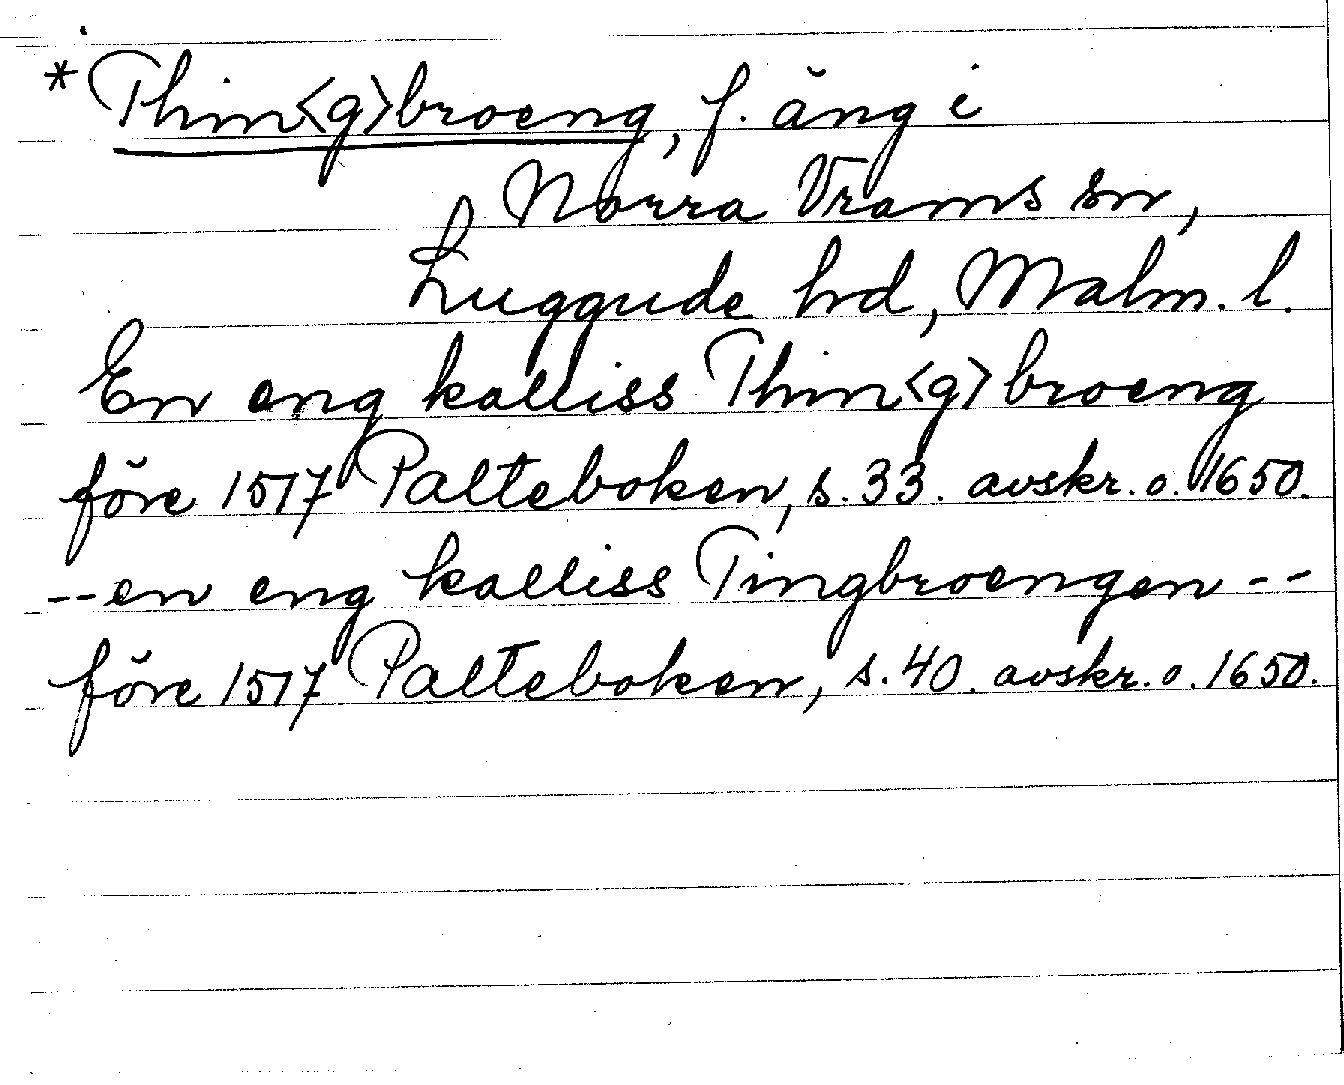 * Thin<g>broeng, f. äng i
Norra Vrams sn,
Luggude hd, Malm. l.
En eng kalliss Thin<g>broeng
före 1517 Palteboken, s. 33. avskr. o. 1650.
--en eng kalliss Tingbroengen--
före 1517 Palteboken, s. 40. avskr. o. 1650.